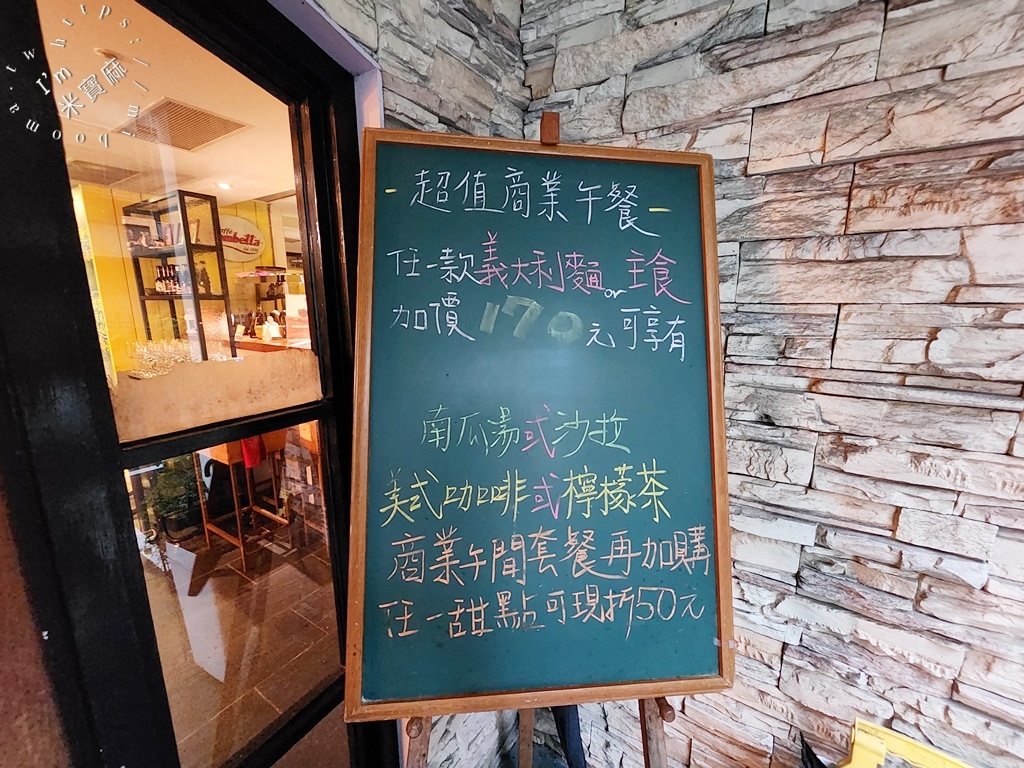 I'm
米寶麻
caffè
- 超值商業午餐 -
任一款義大利麵or主食
加價170元可享有
南瓜湯式沙拉
美式咖啡或檸檬茶
商業午間套餐再加購
任一甜點可現折50元